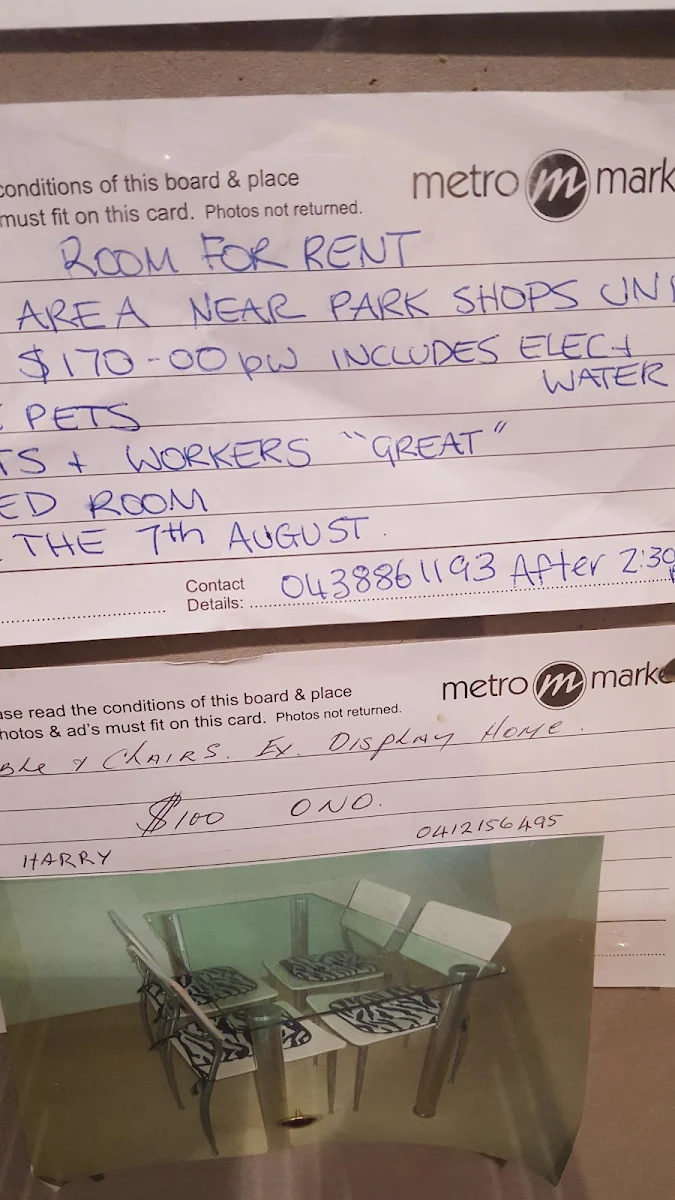 conditions of this board & place
must fit on this card. Photos not returned.
metro m mark
ROOM FOR RENT
AREA NEAR PARK SHOPS UNI
$170-00 pw INCLUDES ELEC +
WATER
PETS
TS + WORKERS "GREAT"
ED ROOM
THE 7th AUGUST.
Contact
Details: 0438861193 After 2:30
ase read the conditions of this board & place
hotos & ad's must fit on this card. Photos not returned.
metro m marke
ble & Chairs. Ex. Display Home.
$100 ONO.
HARRY 0412156495